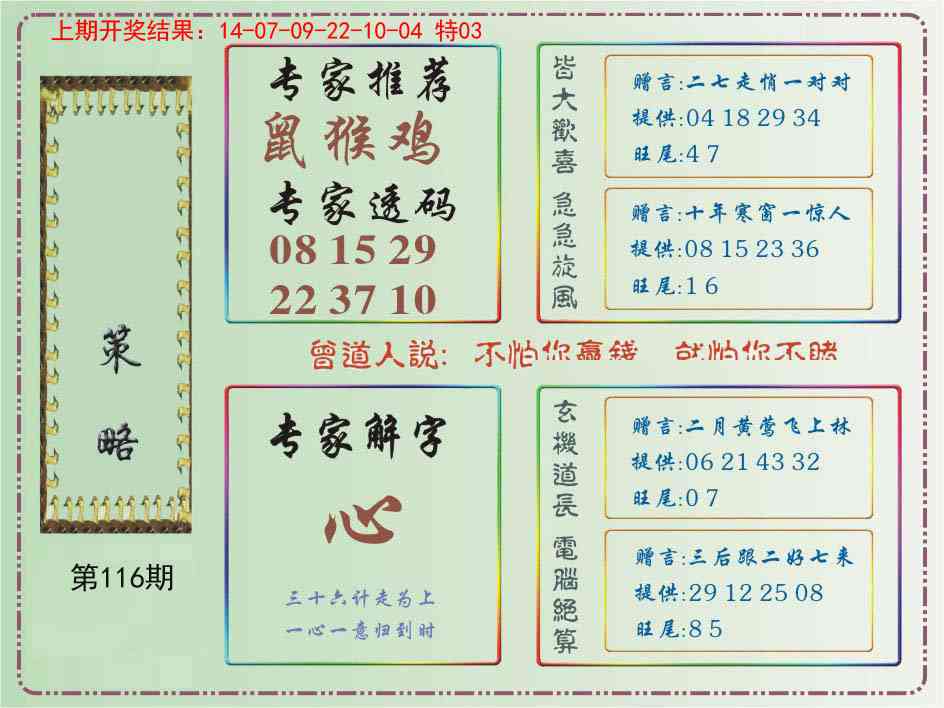 上期开奖结果：14-07-09-22-10-04 特03
策略
第116期
专家推荐
鼠猴鸡
专家透码
08 15 29
22 37 10
皆大歡喜
赠言:二七走悄一对对
提供:04 18 29 34
旺尾:4 7
急急旋風
赠言:十年寒窗一惊人
提供:08 15 23 36
旺尾:1 6
曾道人説: 不怕你赢錢 就怕你不賭
专家解字
心
三十六计走为上
一心一意归到时
玄機道長
赠言:二月黄莺飞上林
提供:06 21 43 32
旺尾:0 7
電腦絕算
赠言:三后跟二好七来
提供:29 12 25 08
旺尾:8 5